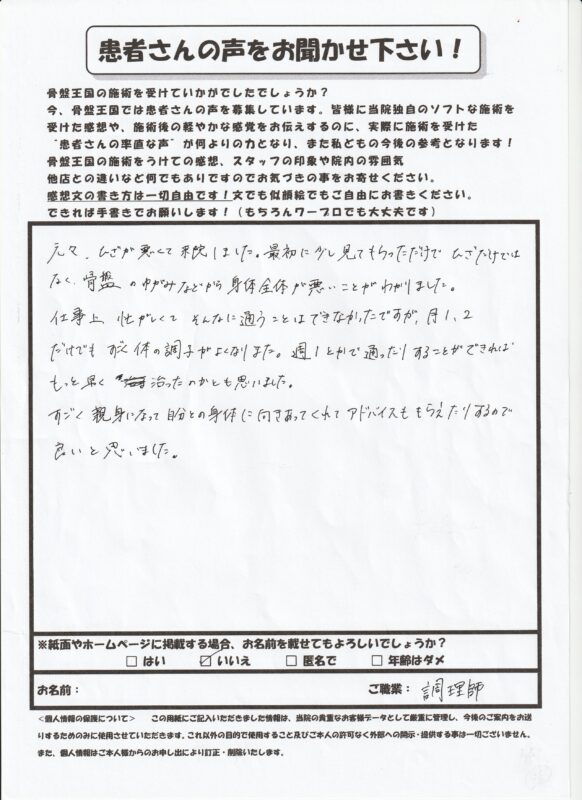 患者さんの声をお聞かせ下さい！
骨盤王国の施術を受けていかがでしたでしょうか？
今、骨盤王国では患者さんの声を募集しています。皆様に当院独自のソフトな施術を
受けた感想や、施術後の軽やかな感覚をお伝えするのに、実際に施術を受けた
“患者さんの率直な声”が何よりの力となり、また私どもの今後の参考となります！
骨盤王国の施術をうけての感想、スタッフの印象や院内の雰囲気
他店との違いなど何でもありですのでお気づきの事をお寄せください。
感想文の書き方は一切自由です！文でも似顔絵でもご自由にお書きください。
できれば手書きでお願いします！（もちろんワープロでも大丈夫です）
元々、ひざが悪くて来院しました。最初に少し見てもらっただけで ひざだけでは
なく、骨盤のゆがみなどから身体全体が悪いことがわかりました。
仕事上 忙がしくて そんなに通うことはできなかったですが、月1、2
だけでも すごく体の調子がよくなりました。週1とかで通ったりすることができれば
もっと早く 治ったのかとも思いました。
すごく親身になって自分との身体に向きあってくれて アドバイスももらえたりするので
良いと思いました。
※紙面やホームページに掲載する場合、お名前を載せてもよろしいでしょうか？
□ はい ☑ いいえ □ 匿名で □ 年齢はダメ
お名前： ご職業： 調理師
＜個人情報の保護について＞ この用紙にご記入いただきました情報は、当院の貴重なお客様データとして厳重に管理し、今後のご案内をお送
りするためのみに使用させていただきます。これ以外の目的で使用すること及びご本人の許可なく外部への開示・提供する事は一切ございません。
また、個人情報はご本人様からのお申し出により訂正・削除いたします。